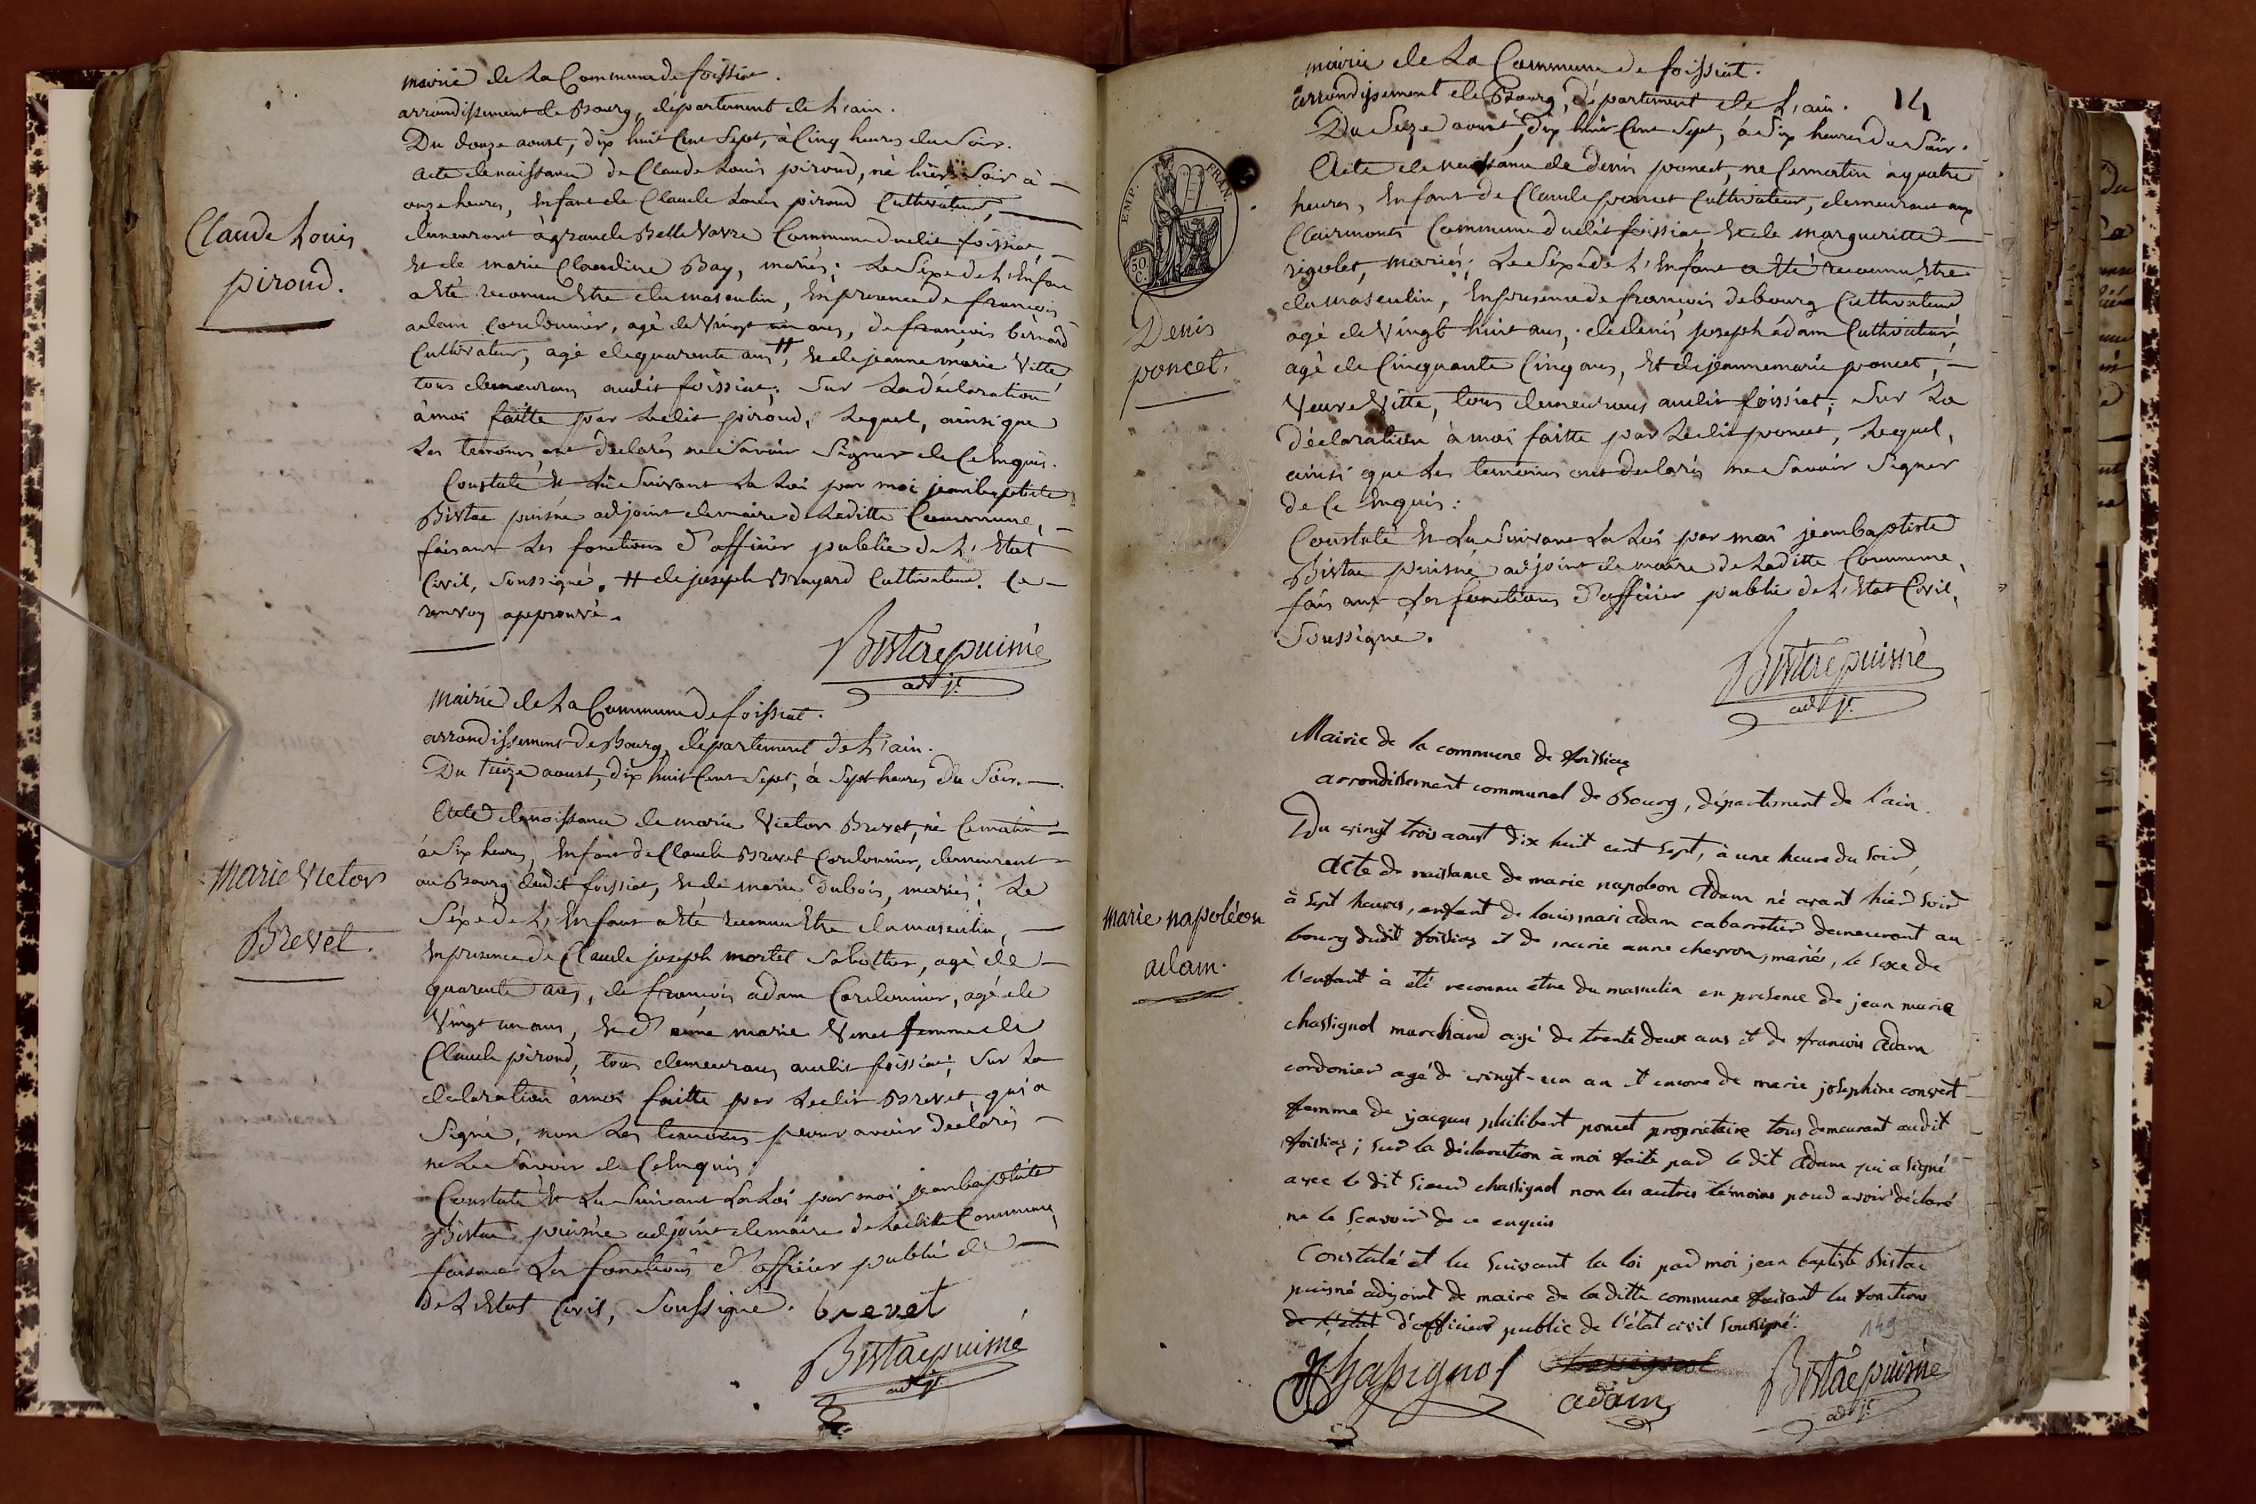 mairie de La Commune de foissiat.
arrondissement de Bourg, département de L'ain.
Du douze aoust, dix huit Cent Sept, à Cinq heures du Soir.
Acte de naissance de Claude Louis piroud, né hier Soir à
onze heures, Enfant de Claude Louis piroud Cultivateur,
demeurant à grande Belle Vavre Commune dudit foissiat,
Claude Louis
piroud.
Et de marie Claudine Bay, mariés; Le Sexe de L'Enfant
a Eté reconnu Etre du masculin, En présence de françois
adam Cordonnier, agé de Vingt un ans, de françois bernard
Cultivateur, agé de quarente ans #, Et de jeanne marie Vitte
tous demeurans audit foissiat; Sur La déclaration
à moi faitte par Ledit piroud, Lequel, ainsi que
Les temoins ont déclarés ne Savoir Signer de Ce Enquis.
Constaté Et Lu Suivant La Loi par moi jean baptiste
Bistac puisné adjoint de maire de Laditte Commune,
faisant Les fonctions d'officier public de L'Etat
Civil, Soussigné. # de joseph Brayard Cultivateur. Ce
renvoy approuvé.
Bistac puisné
adjt.
mairie de La Commune de foissiat.
arrondissement de Bourg, département de L'ain.
Du treize aoust, dix huit Cent Sept, à Sept heures du Soir.
Acte de naissance de marie Victor Brevet, né Ce matin
à Six heures, Enfant de Claude Brevet Cordonnier, demeurant
au Bourg dudit foissiat, Et de marie dubois, mariés; Le
Marie Victor
Brevet.
Séxe de L'Enfant a Eté reconnu Etre du masculin,
En présence de Claude joseph mortel Sabottier, agé de
quarente ans, de françois adam Cordonnier, agé de
Vingt un ans, Et d'aimé marie Venet femme de
Claude piroud, tous demeurans audit foissiat; Sur La
declaration à moi faitte par Ledit Brevet qui a
Signé, non Les temoins pour avoir déclarés
ne Le Savoir de Ce Enquis.
Constaté Et Lu Suivant La Loi par moi jean baptiste
Bistac puisné adjoint de maire de Laditte Commune,
faisant Les fonctions d'officier public de
de L'Etat Civil, Soussigné. brevet
Bistac puisné
adjt.
mairie de La Commune de foissiat.
arrondissement de Bourg, département de L'ain. 14
Du Seize aoust, dix huit Cent Sept, à Six heures du Soir.
EMP. FRAN.
50 C.
Acte de naissance de denis poncet, né Ce matin à quatre
heures, Enfant de Claude poncet Cultivateur, demeurant aux
Clairmonts Commune dudit foissiat, Et de margueritte
rigolet, mariés; Le Séxe de L'Enfant a Eté reconnu Etre
du masculin, En présence de françois debourg Cultivateur
Denis
poncet.
agé de Vingt huit ans, de denis joseph adam Cultivateur,
agé de Cinquante Cinq ans, Et de jeanne marie poncet,
Veuve Vitte, tous demeurans audit foissiat; Sur La
déclaration à moi faitte par Ledit poncet, Lequel,
ainsi que Les temoins ont déclarés ne Savoir Signer
de Ce Enquis:
Constaté Et Lu Suivant La Loi par moi jean baptiste
Bistac puisné adjoint de maire de Laditte Commune,
faisant Les fonctions d'officier public de L'Etat Civil,
Soussigné.
Bistac puisné
adjt.
Mairie de la commune de foissiaz
arrondissement communal de Bourg, département de l'ain.
Du vingt trois aoust dix huit cent sept, à une heure du soir,
Acte de naissance de marie napoleon Adam né avant hier soir
à sept heures, enfant de louis mari adam cabarretier demeurant au
bourg dudit foissiaz et de marie anne chevron, mariés, le sexe de
marie napoléon
adam.
l'enfant à été reconnu etre du masculin en présence de jean marie
chassignol marchand agé de trente deux ans et de francois Adam
cordonier agé de vingt-un an et encore de marie josephine convert
femme de jacques philibert poncet propriétaire tous demeurant audit
foissiaz; sur la déclaration à moi faite par le dit Adam qui a signé
avec le dit sieur chassignol non les autres témoins pour avoir déclaré
ne le scavoir de ce enquis
Constaté et lu suivant la loi par moi jean baptiste Bistac
puisné adjoint de maire de la ditte commune faisant les fonctions
de l'état d'officier public de l'état civil soussigné.
149
Chassignol chassignol
adam
Bistac puisné
adjt.